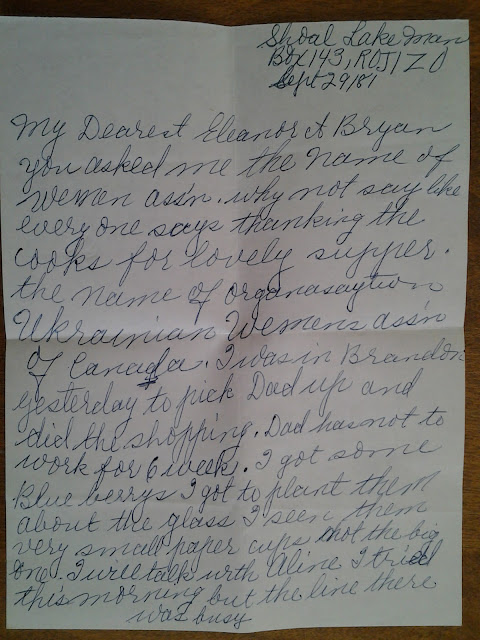 Shoal Lake man
Box 143, ROJ1ZO
Sept 29/81
My Dearest Eleanor & Bryan
you asked me the name of
Wemen ass'n. why not say like
everyone says thanking the
cooks for lovely supper.
the name of organasaytion
Ukrainian Wemens ass'n
Of Canada. I was in Brandon
yesterday to pick Dad up and
did the shopping. Dad has not to
work for 6 week. I got some
Blue berrys I got to plant them
about the glass I seen them
very small paper cups not the big
one. I will talk with Aline I tried
this morning but the line there
was busy